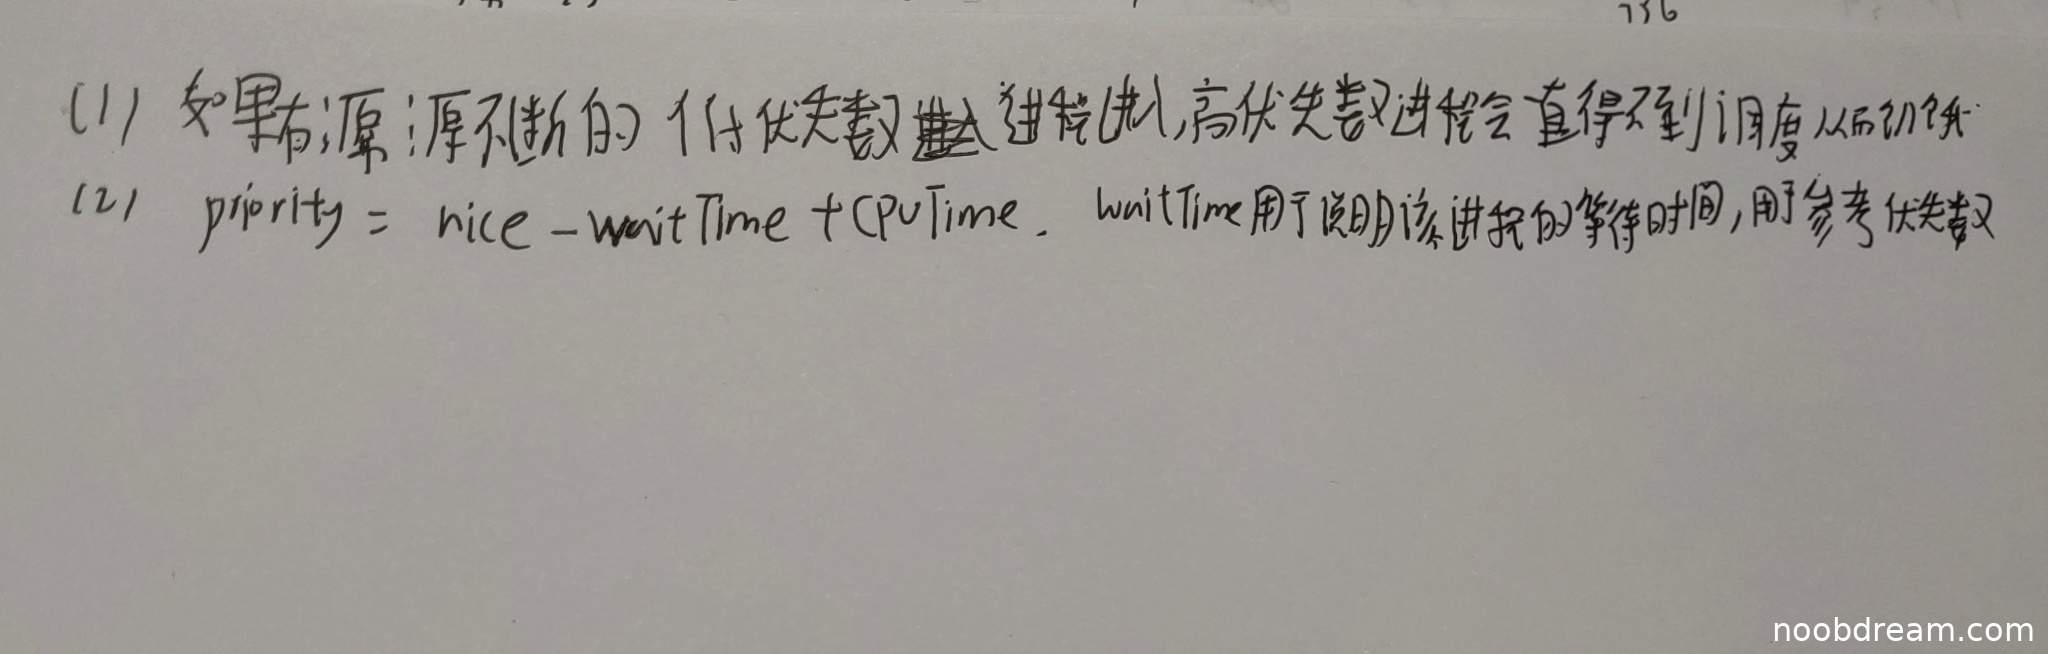 736
(1) 如果有源源不断的低优先数进程进入,高优先数进程会一直得不到调度从而饥饿.
(2) priority = nice - waitTime + CPUTime. waitTime用于说明该进程的等待时间,用于参考优先数
noobdream.com